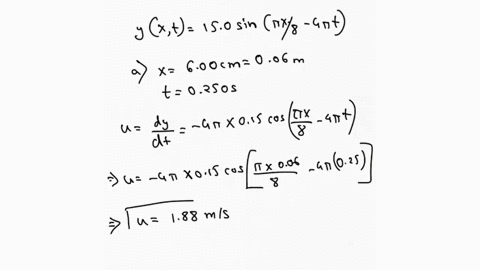 y(x,t) = 15.0 sin (πx/8 - 4πt)
a) x = 6.00cm = 0.06 m
t = 0.250s
u = dy/dt = -4π x 0.15 cos(πx/8 - 4πt)
⇒ u = -4π x 0.15 cos[π x 0.06/8 - 4π(0.25)]
⇒ u = 1.88 m/s